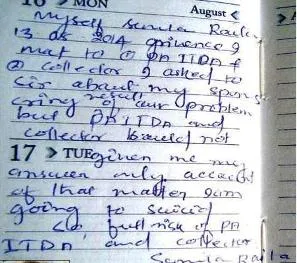 MON August
myself Sunila Raila
13 2014 grivence g
met to PA ITDA &
collector g asked to
sir about my spons
cring result our problem
but PA ITDA and
collector could not
17 > TUE given me my
answer only account
of that matter gam
going to suicid
so full risk of PA
ITDA and collector
Sunila Raila